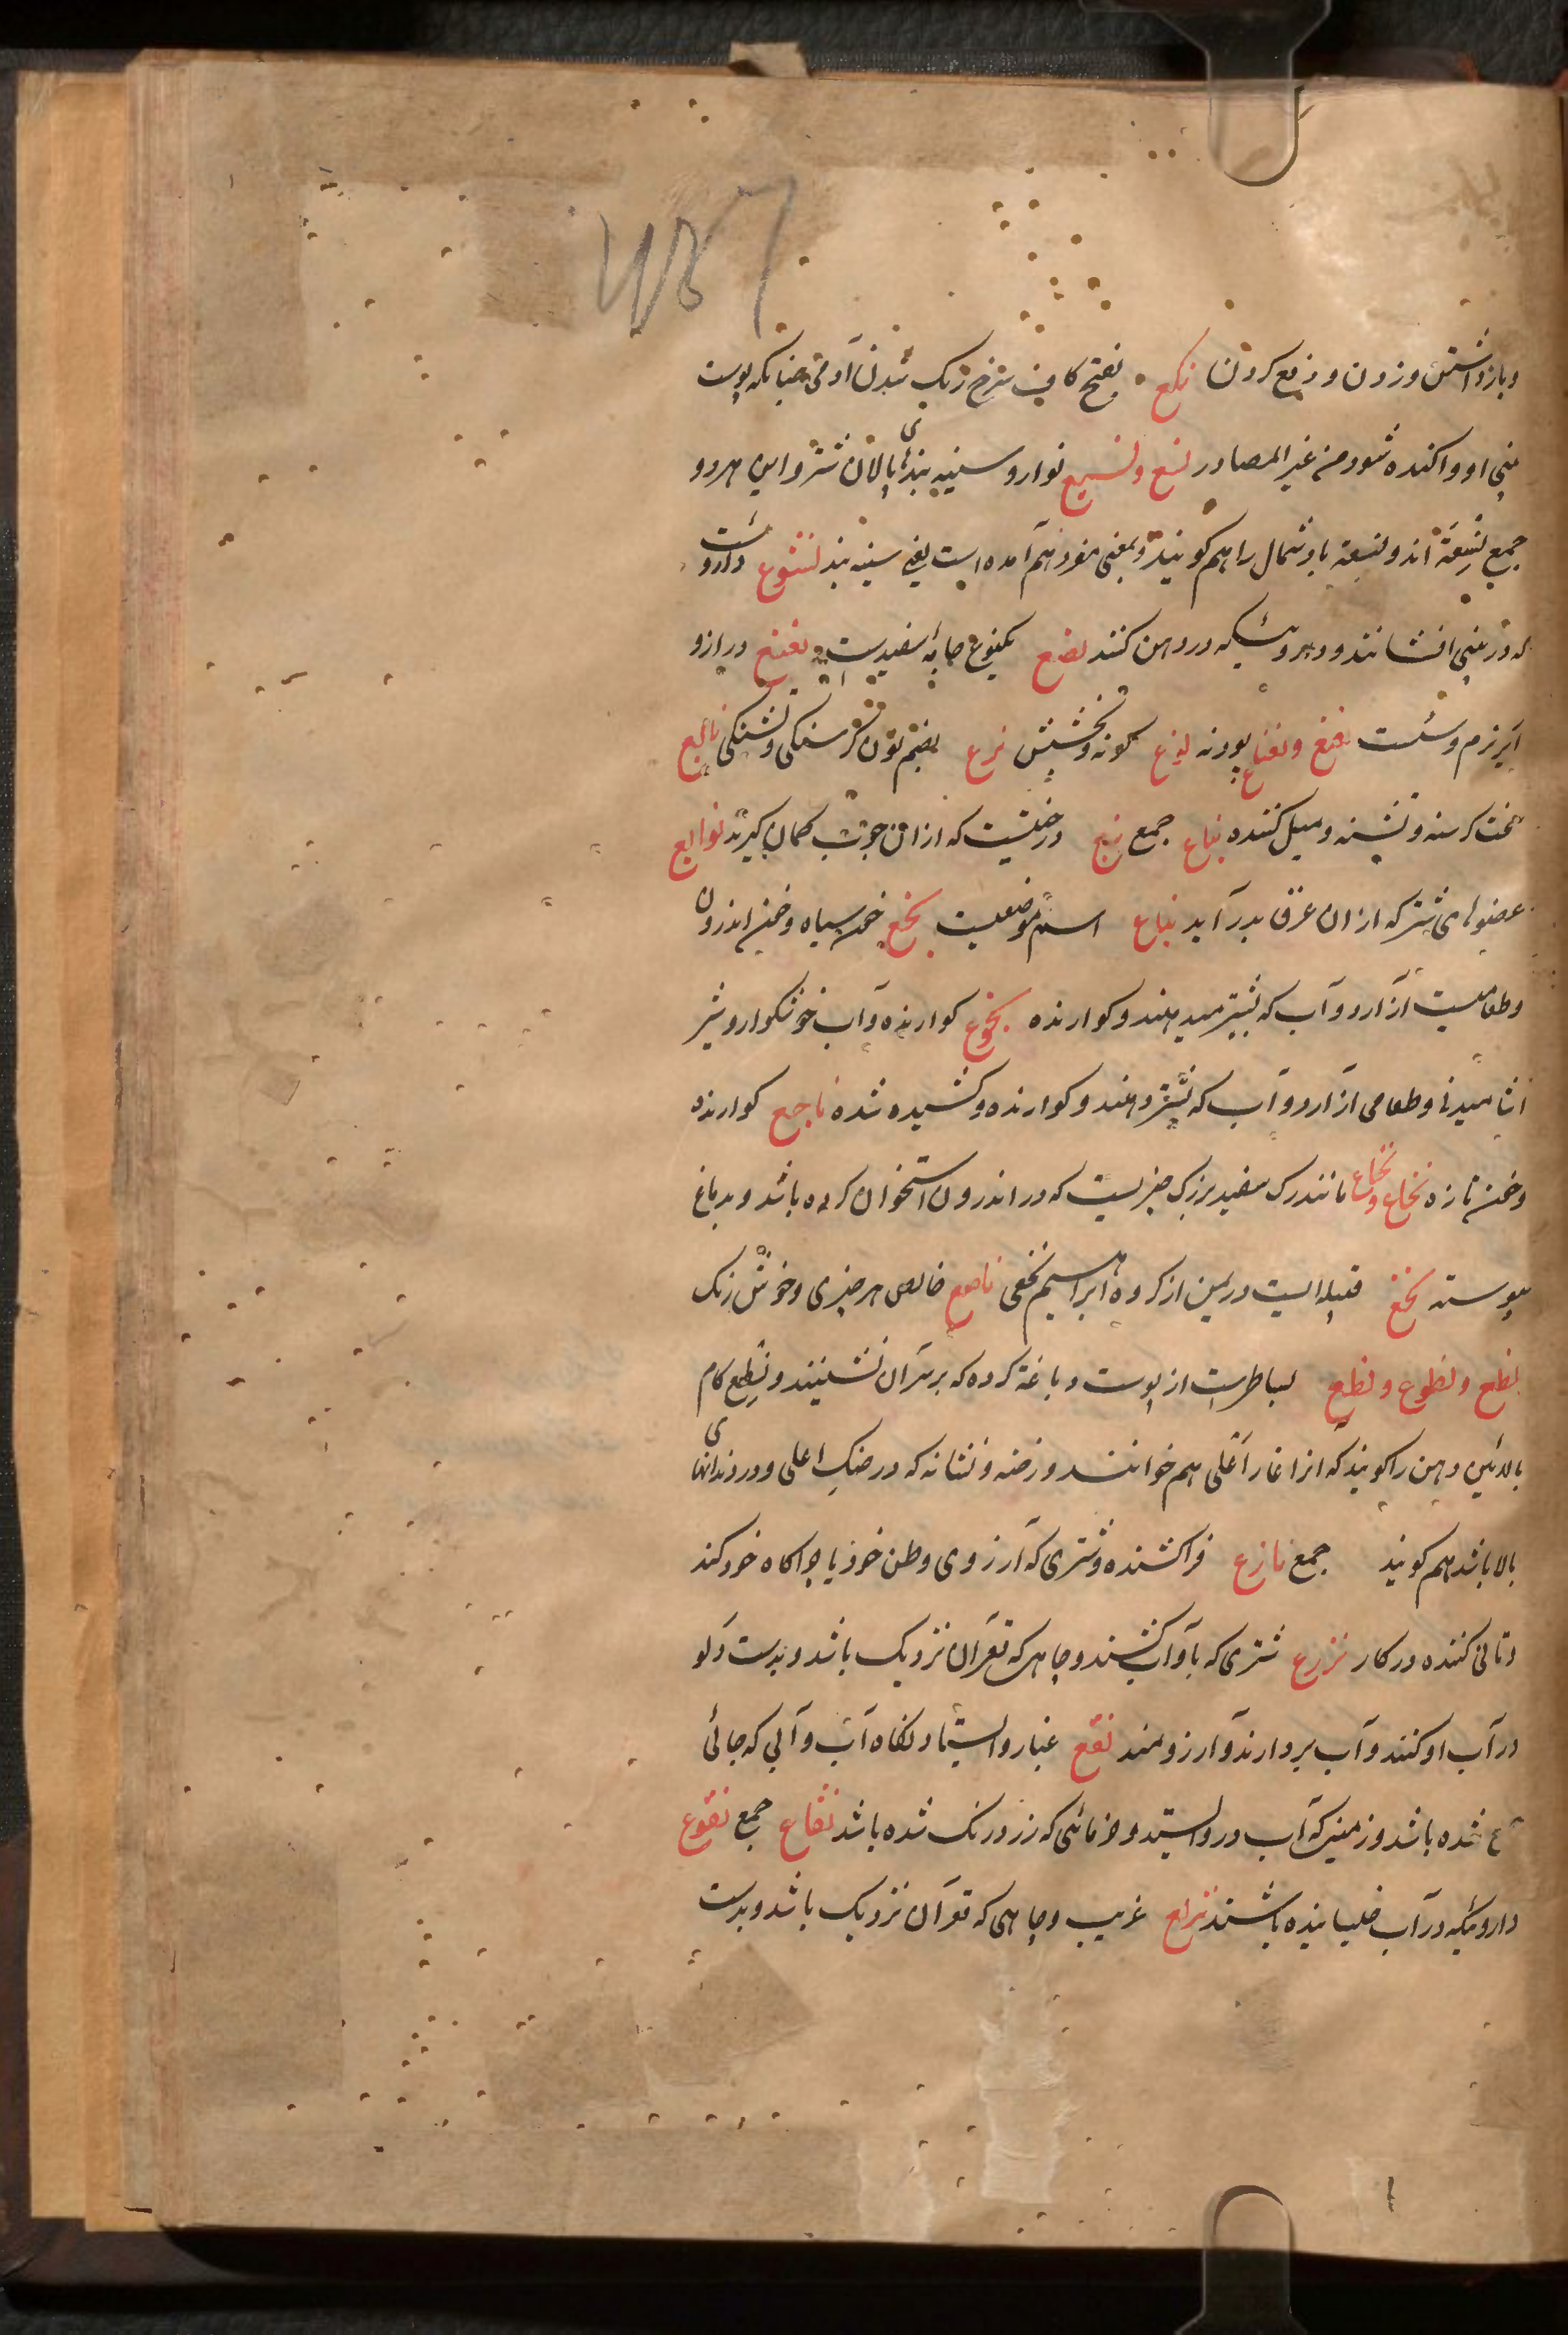 و بازداشتن و زدن و دفع کردن نکع بفتح کاف سرخ رنک شدن آدمی چنانکه پوست
بینی او واکنده شود من غیر المصادر نسع و نسیع نوار و سینه بندهای پالان شتر و این هر دو
جمع نسعة اند و نسعة باد شمال را هم کویند و بمعنی مفرد هم آمده است یعنی سینه بند نشوع داروئیست
که در بینی افشانند و داروئیکه در دهن کنند نصع یکنوع جامه سفیدیست نعنع دراز و
نرم و سست نعنع و نعناع پودنه نوع کونه و بخشش نوع بضم نون کرسنکی و تشنکی نائع
سخت کرسنه و تشنه و میل کننده نباع جمع نبع درختیست که ازان چوب کمان کیرند نوابع
عضوهای شتر که ازان عرق بدر آید نباع اسم موضعیست نجع خون سیاه و خون اندرون
و طعامیست از آرد و آب که بشتر میدهند و کوارنده نجوع کوارنده و آب خوشکوار و شیر
آشامیدنی و طعامی از آرد و آب که بشتر دهند و کوارنده و کشیده شده ناجع کوارنده
و خون تازه نخاع و نخاع مانند رک سفید بزرک چیزیست که در اندرون استخوان کرده باشد و بدماغ
پیوسته نخع قبیله ایست در یمن از کروه ابراهیم نخعی ناصع خالص هر چیزی و خوش رنک
نطع و نطوع و نطع بساطیست از پوست دباغة کرده که بر سر آن نشینند و نطع کام
بالائین دهن را کویند که انرا غار اعلی هم خوانند و رخنه و نشانه که در حنک اعلی و در دندانهای
بالا باشد هم کویند جمع نازع فراکشنده و شتری که آرزوی وطن خود یا چراکاه خود کند
و تانی کننده در کار نزیع شتری که باو آب کشند و چاهی که قعر آن نزدیک باشد و بدست دلو
در آب اوکنند و آب بردارند و آرزومند نقع غبار و ایستادنکاه آب و آبی که جائی
جمع شده باشد و زمینی که آب درو ایستد و خرمائی که زرد رنک شده باشد نقاع جمع نقوع
داروئیکه در آب خیسانیده باشند نزائع غریب و چاهی که قعر آن نزدیک باشد و بدست